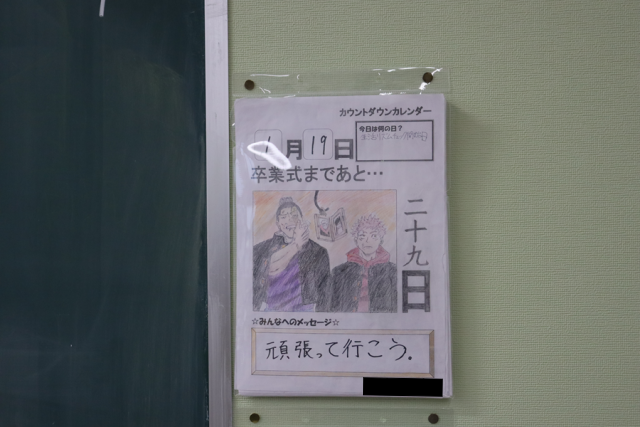 カウントダウンカレンダー
今日は何の日？
1月19日
卒業式まであと…
二十九日
☆みんなへのメッセージ☆
頑張って行こう.